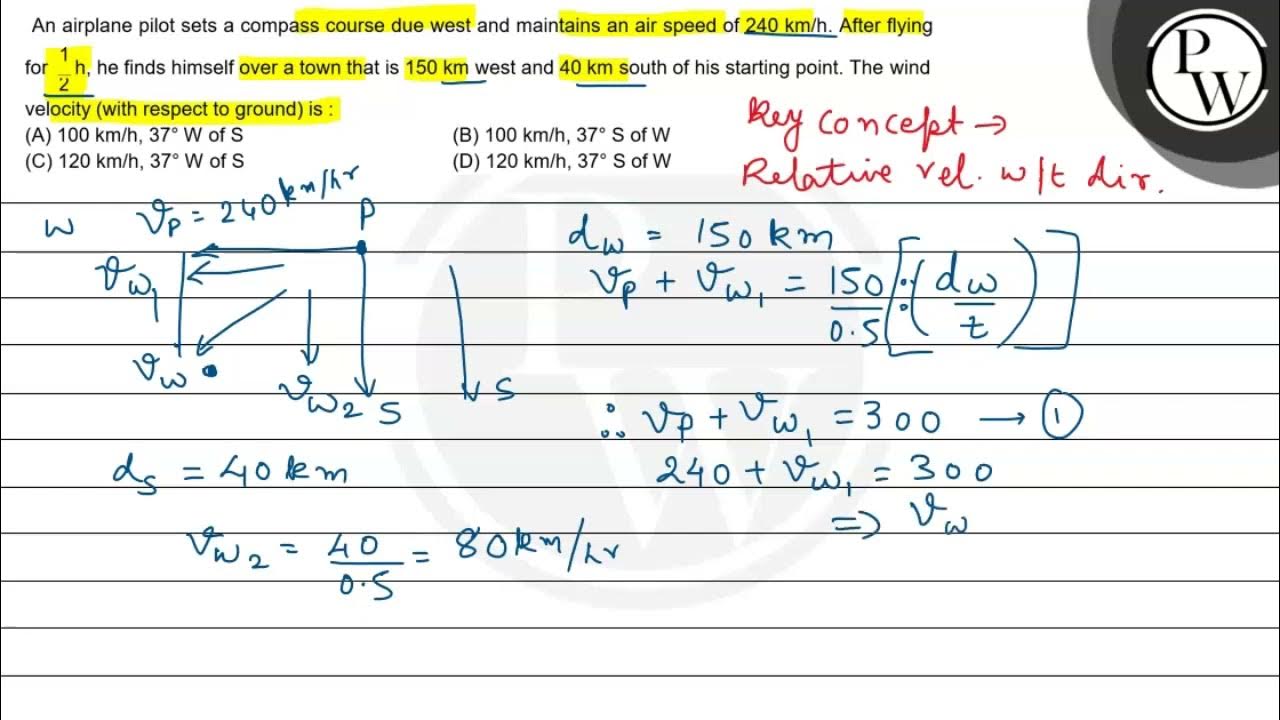 An airplane pilot sets a compass course due west and maintains an air speed of 240 km/h. After flying
for 1/2 h, he finds himself over a town that is 150 km west and 40 km south of his starting point. The wind
velocity (with respect to ground) is :
(A) 100 km/h, 37° W of S (B) 100 km/h, 37° S of W
(C) 120 km/h, 37° W of S (D) 120 km/h, 37° S of W
PW
Key concept →
Relative vel. w/t dir.
W
v_p = 240 km/hr
P
v_w₁
v_w
v_w₂
S
S
d_s = 40 km
v_w₂ = 40/0.5 = 80 km/hr
d_w = 150 km
v_p + v_w₁ = 150/0.5 [∵ (d_w/t)]
∴ v_p + v_w₁ = 300 → ①
240 + v_w₁ = 300
⇒ v_w